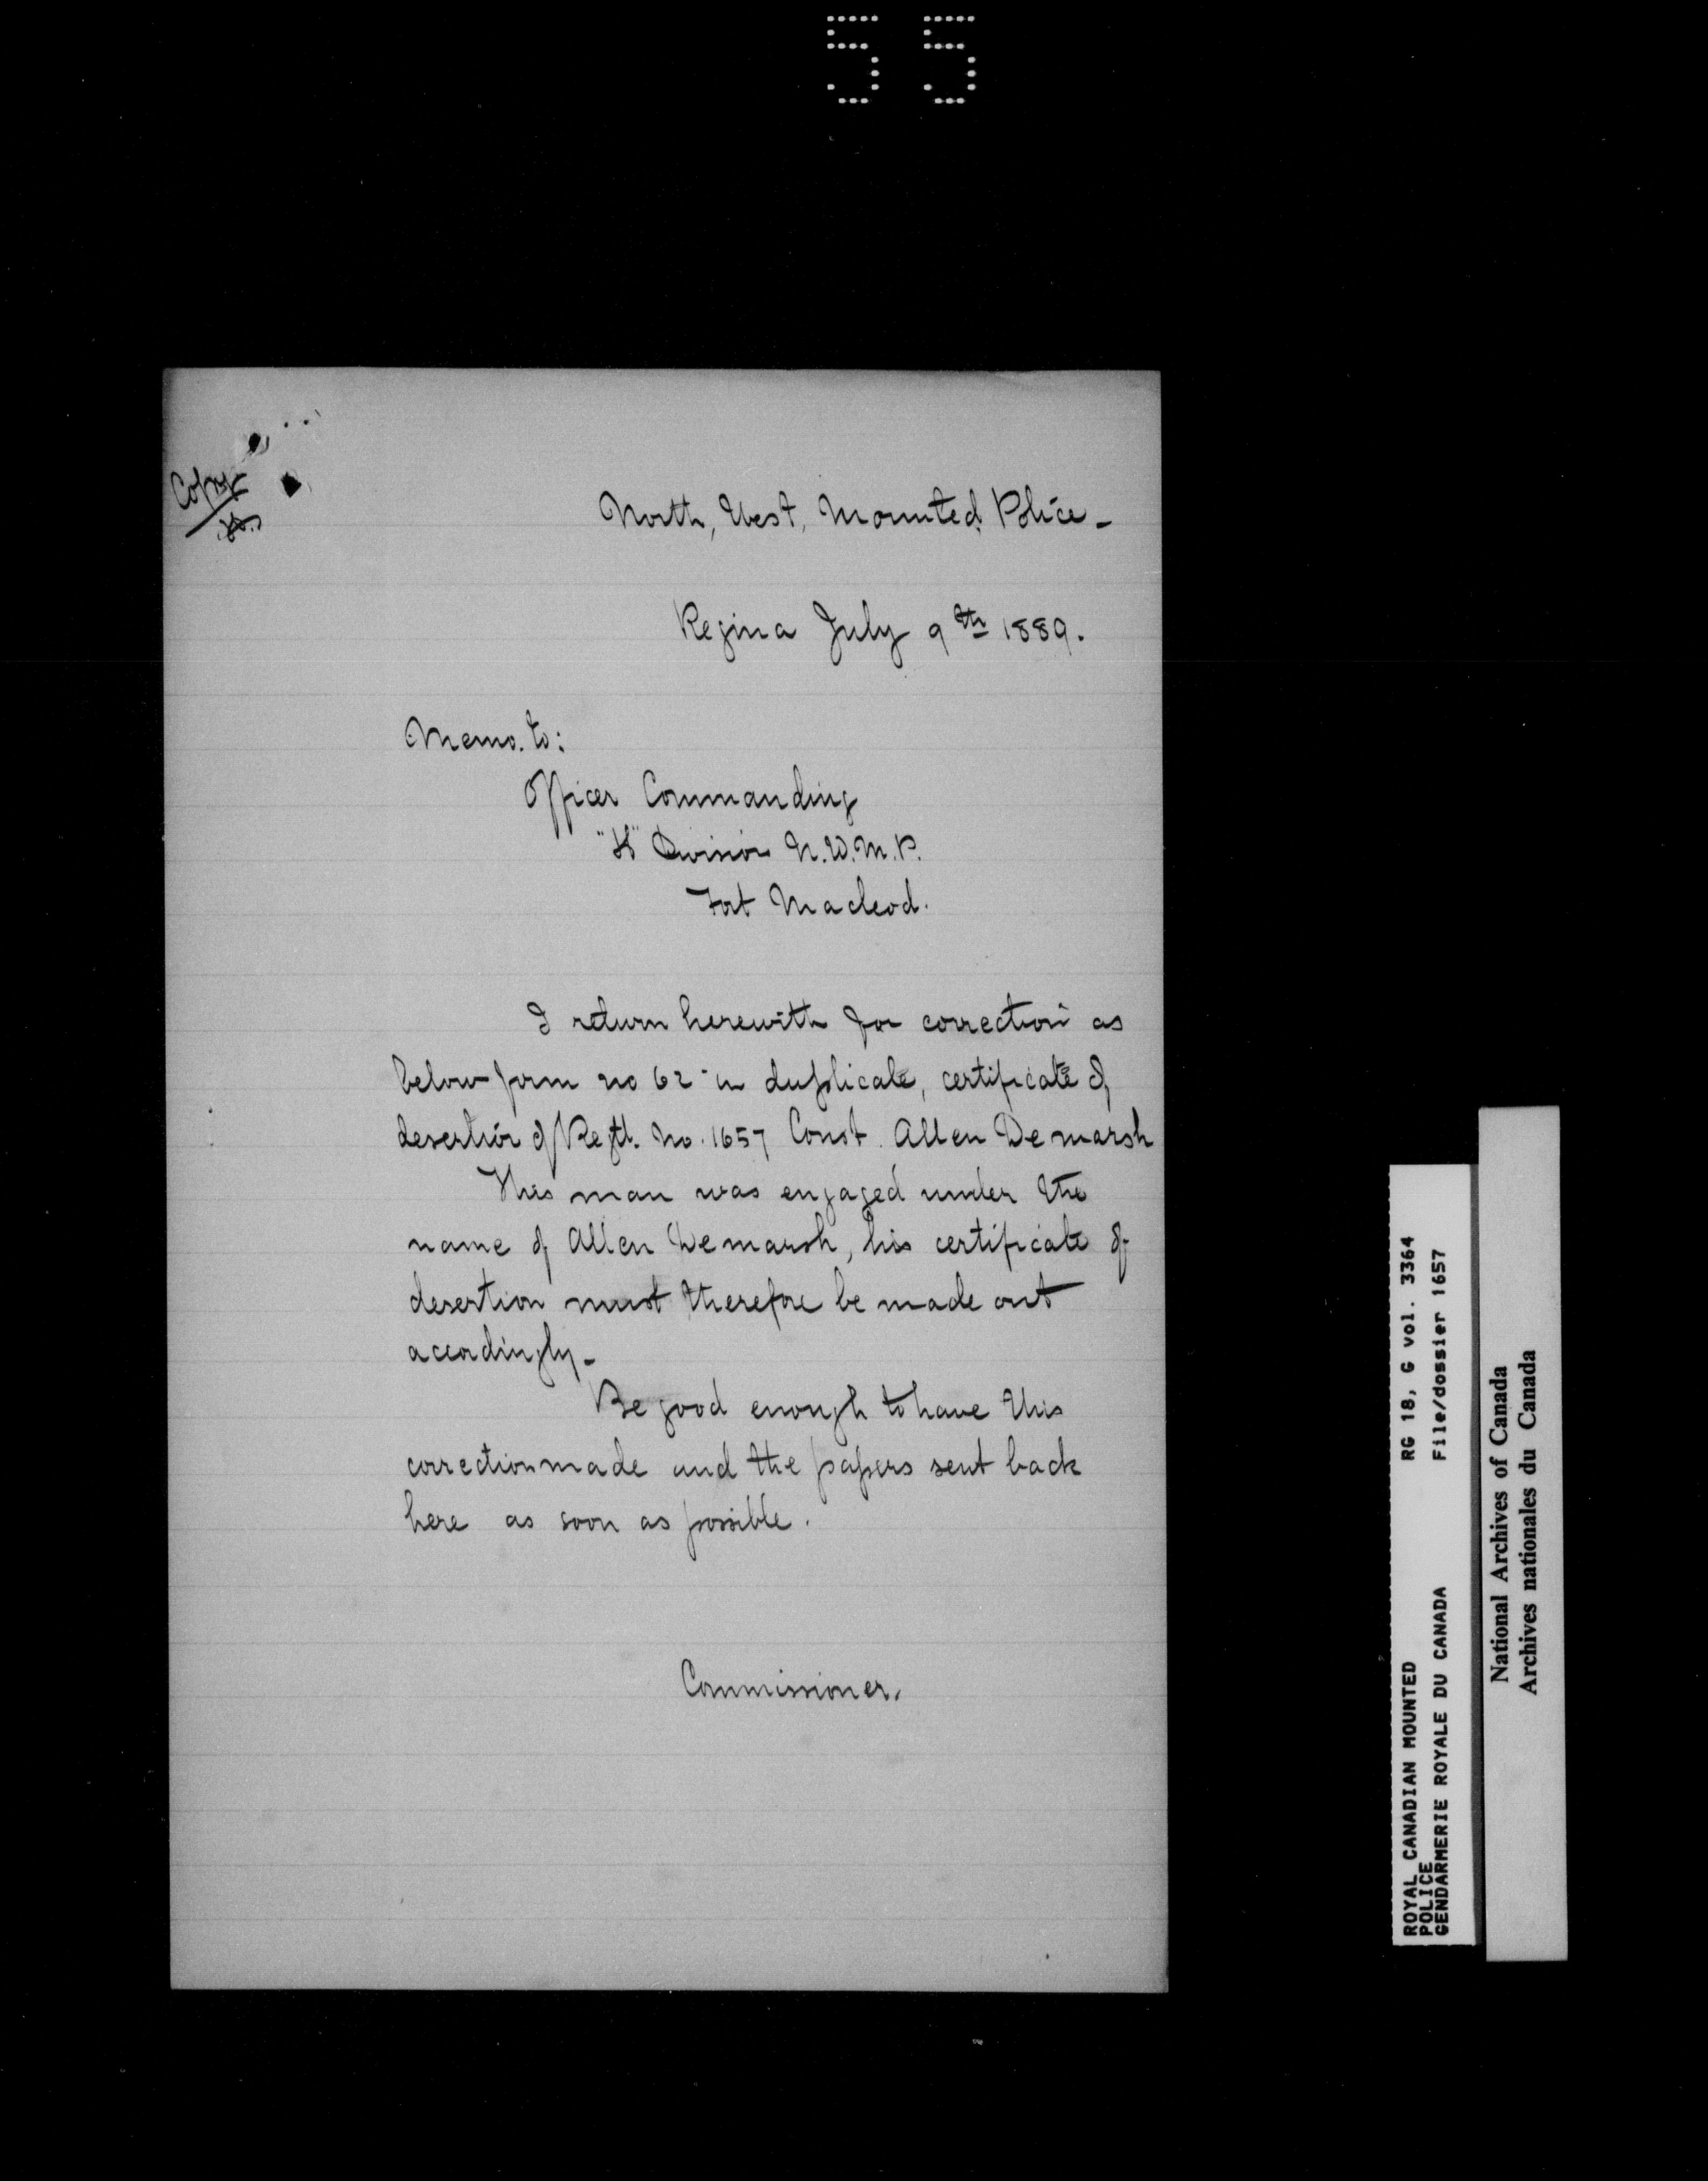 55
Copy
North, West, Mounted Police -
Regina July 9th 1889.
Memo. to:
Officer Commanding
"H" Division N.W.M.P.
Fort Macleod.
I return herewith for correction as
below form no 62 in duplicate, certificate of
desertion of Regtl. No. 1657 Const. Allen Demarsh
This man was engaged under the
name of Allen Demarsh, his certificate of
desertion must therefore be made out
accordingly -
Be good enough to have this
correction made and the papers sent back
here as soon as possible.
Commissioner.
ROYAL CANADIAN MOUNTED RG 18, G vol. 3364
POLICE
GENDARMERIE ROYALE DU CANADA File/dossier 1657
National Archives of Canada
Archives nationales du Canada